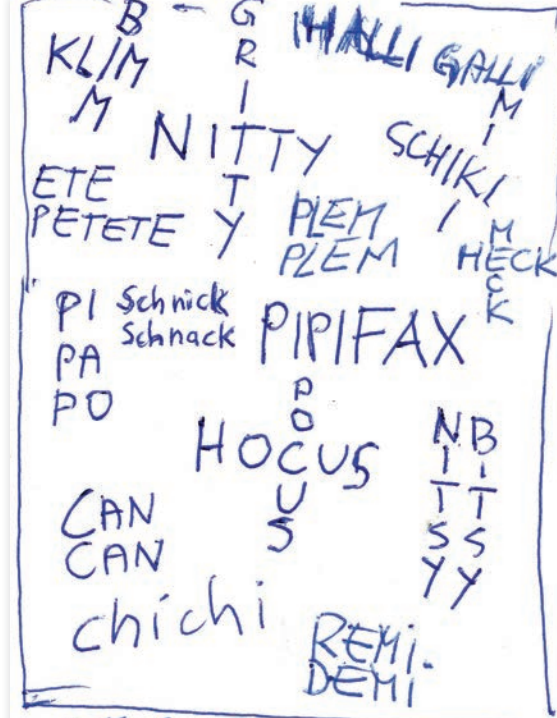 B -
KLIM
M
GRITTY
HALLI GALLI
NITTY
SCHIKI
MIKI
ETE
PETETE
PLEM
PLEM
HECK
MECK
PI
PA
PO
Schnick
Schnack
PIPIFAX
HOCUS
POCUS
NITSY
BITSY
CAN
CAN
chichi
REMi-
DEMi